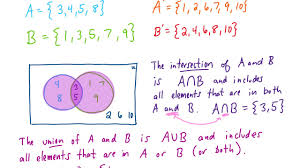 A = {3,4,5,8}
A' = {1,2,6,7,9,10}
B = {1,3,5,7,9}
B' = {2,4,6,8,10}
The intersection of A and B
is A∩B and includes
all elements that are in both
A and B. A∩B = {3,5}
4 3 1 7
8 5 9
2 6 10
The union of A and B is A∪B and includes
all elements that are in A or B (or both).